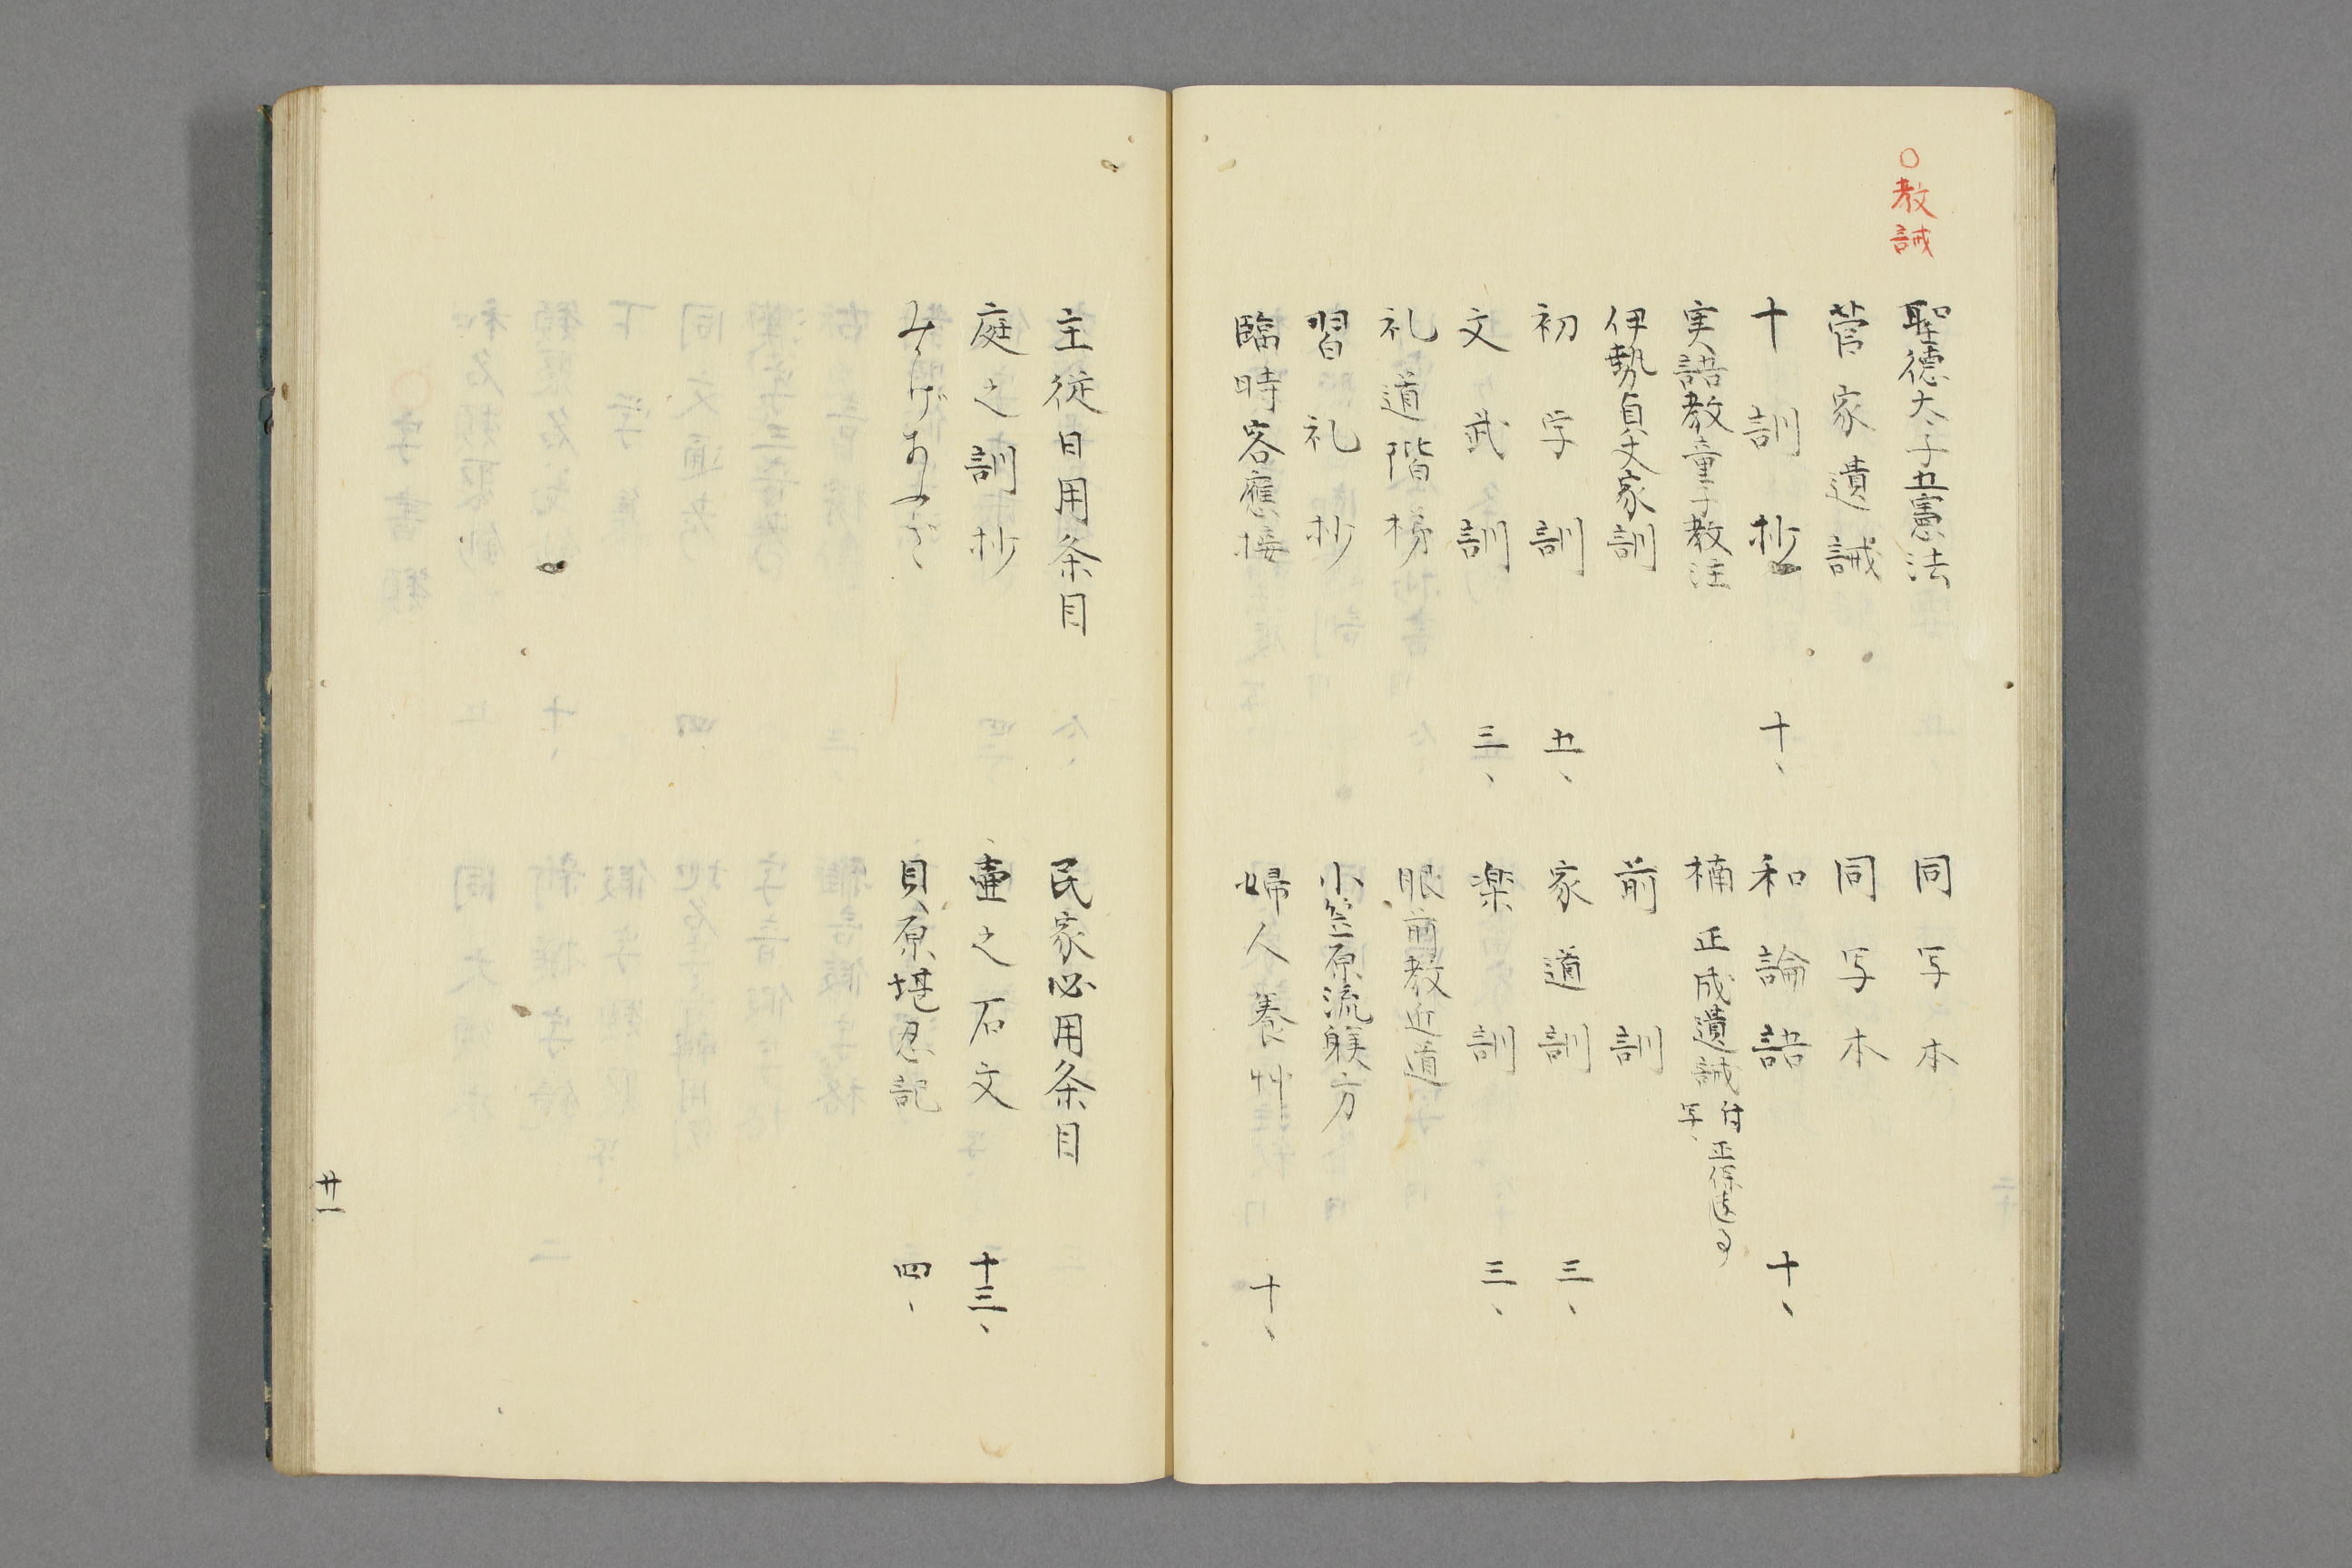 ○教誡
聖徳太子五憲法
同写本
菅家遺誡
同写本
十訓抄 十、
和論語 十、
実語教童子教注
楠正成遺誡 付正保 写、
伊勢貞丈家訓
前訓
初学訓 五、
家道訓 三、
文武訓 三、
楽訓 三、
礼道階梯
眼前教近道
習礼抄
小笠原流躾方
臨時客應接
婦人養草 十、
主従日用条目
民家必用条目
庭之訓抄
壷之石文 十三、
貝原堪忍記 四、
廿一